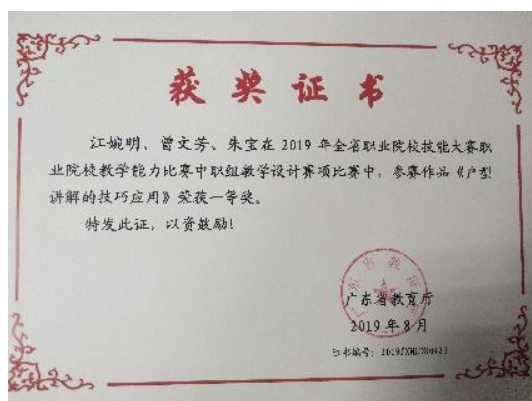 获奖证书
江婉明、曾文芳、朱宝在 2019 年全省职业院校技能大赛职
业院校教学能力比赛中职组教学设计赛项比赛中，参赛作品《户型
讲解的技巧应用》荣获一等奖。
特发此证，以资鼓励！
广东省教育厅
2019 年 8 月
证书编号：